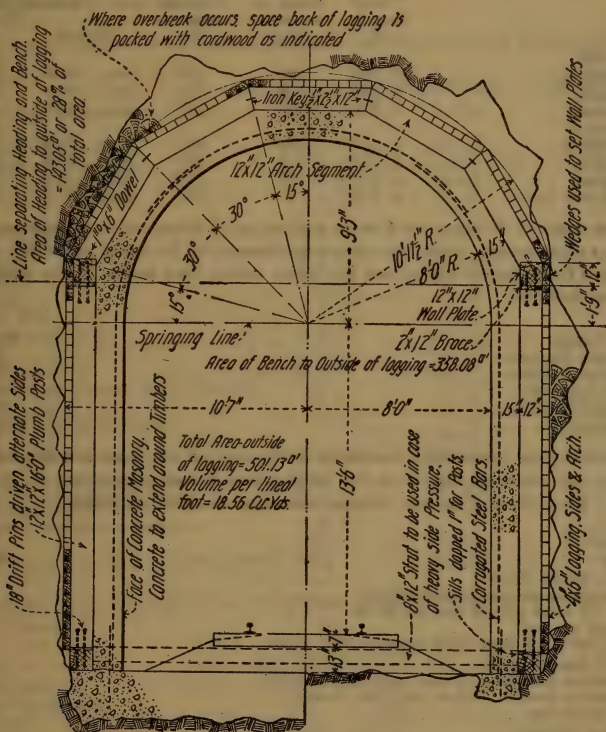 Where overbreak occurs, space back of lagging is
packed with cordwood as indicated
Line separating Heading and Bench.
Area of Heading to outside of lagging
= 143.05□' or 28% of
total area.
Iron Key ½"x2½"x12"
12"x12" Arch Segment
x6" Dowel
30°
15°
30°
15°
9'3"
10'-11½" R.
8'-0" R.
15"
Wedges used to set Wall Plates
12"x12"
Wall Plate
2"x12" Brace
1'-9"
12"
Springing Line
Area of Bench to Outside of lagging = 358.08□'
10'-7"
8'-0"
15"
12"
Total Area-outside
of lagging = 501.13□'
Volume per lineal
foot = 18.56 Cu. Yds.
13'6"
18" Drift Pins driven alternate Sides
12"x12"x16'-0" Plumb Posts
Face of Concrete Masonry.
Concrete to extend around Timbers
8"x12" Strut to be used in case
of heavy side Pressure.
Sills dapped 1" for Posts.
Corrugated Steel Bars.
Lagging Sides & Arch.
13"
7"